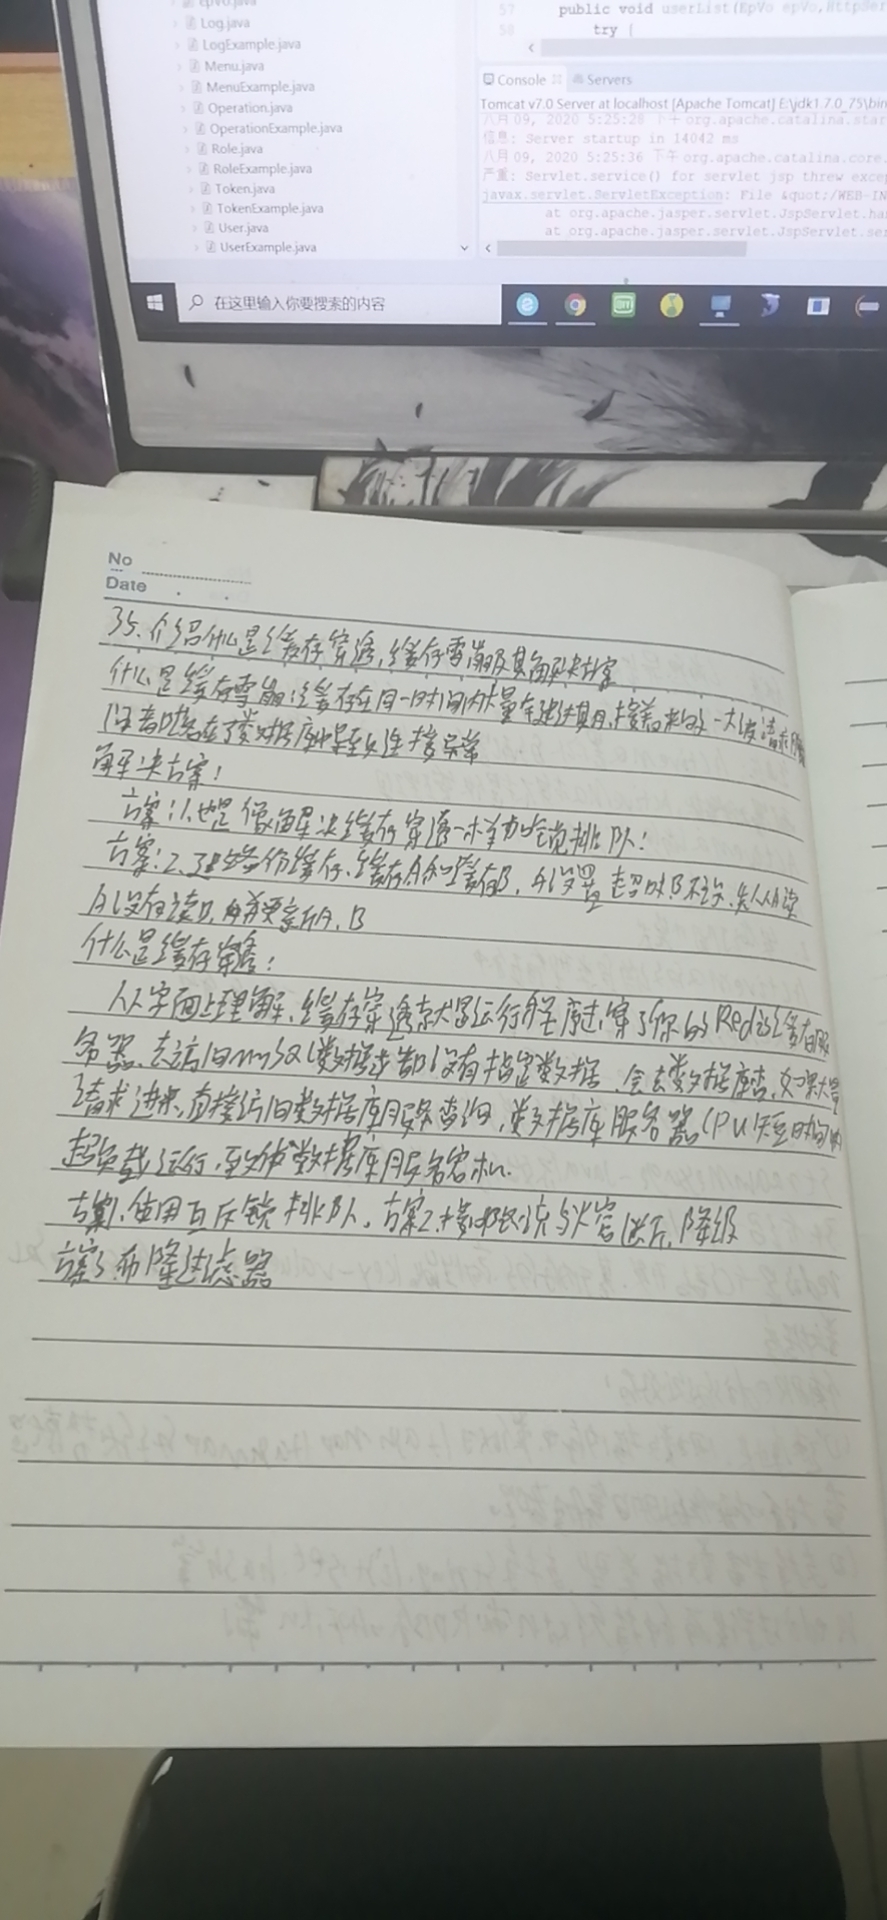 Log.java
LogExample.java
Menu.java
MenuExample.java
Operation.java
OperationExample.java
Role.java
RoleExample.java
Token.java
TokenExample.java
User.java
UserExample.java
57 public void userList(EpVo epVo,HttpSer
58 try {
Console Servers
Tomcat v7.0 Server at localhost [Apache Tomcat] E:\jdk1.7.0_75\bin
八月 09, 2020 5:25:28 下午 org.apache.catalina.star
信息: Server startup in 14042 ms
八月 09, 2020 5:25:36 下午 org.apache.catalina.core.
严重: Servlet.service() for servlet jsp threw excep
javax.servlet.ServletException: File &quot;/WEB-IN
at org.apache.jasper.servlet.JspServlet.ha
at org.apache.jasper.servlet.JspServlet.se
在这里输入你要搜索的内容
No
Date
35.介绍什么是缓存穿透,缓存雪崩及其解决方案
什么是缓存雪崩:缓存在同一时间内大量键过期,接着来的一大波请求
都落在了数据库中导致连接异常
解决方案:
方案:1.也是像解决缓存穿透一样加锁排队:
方案:2.建立备份缓存,缓存A和缓存B,A设置超时,B不设,先从A读
A没有读B,并更新A,B
什么是缓存穿透:
从字面上理解,缓存穿透 穿了你的Redis缓存服
务器,去访问mySQL数据 没有指定数据,会去数据库查,如果大量
请求进来,直接访问数据库服务查询,数据库服务器CPU短时间内
超负载运行,至 数据库服务宕机.
方案1.使用互斥锁排队,方案2.接口限流与 ,降级
方案3 布隆过滤器